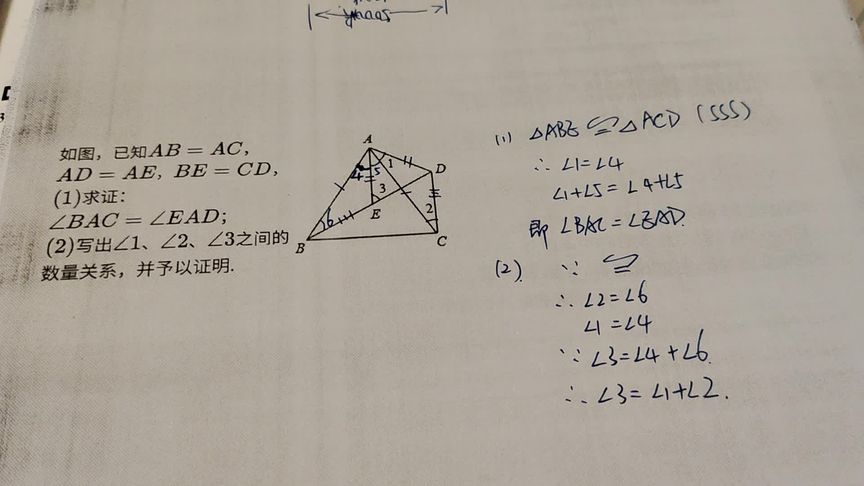 如图，已知AB = AC,
AD = AE, BE = CD,
(1)求证:
∠BAC = ∠EAD;
(2)写出∠1、∠2、∠3之间的
数量关系，并予以证明.
A
D
1
4
5
3
E
2
6
B
C
(1) △ABE ≌ △ACD (SSS)
∴ ∠1=∠4
∠1+∠5=∠4+∠5
即 ∠BAC=∠EAD.
(2) ∵ ≌
∴ ∠2=∠6
∠1=∠4
∵ ∠3=∠4+∠6.
∴ ∠3=∠1+∠2.